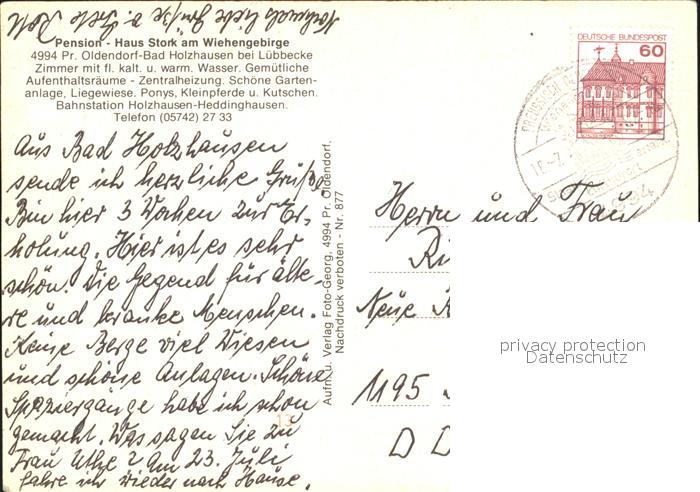 Pension - Haus Stork am Wiehengebirge
4994 Pr. Oldendorf-Bad Holzhausen bei Lübbecke
Zimmer mit fl. kalt. u. warm. Wasser. Gemütliche
Aufenthaltsräume - Zentralheizung. Schöne Garten-
anlage, Liegewiese. Ponys, Kleinpferde u. Kutschen.
Bahnstation Holzhausen-Heddinghausen.
Telefon (05742) 27 33
Aus Bad Holzhausen
sende ich herzliche Grüße
Bin hier 3 Wochen zur Er-
holung. Hier ist es sehr
schön. Die Gegend für älte-
re und kranke Menschen.
Keine Berge viel Wiesen
und schöne Anlagen. Schöne
Spaziergänge habe ich schon
gemacht. Was sagen Sie zu
Frau Uthe? Am 23. Juli
fahre ich wieder nach Hause.
Nochmals liebe Grüße
Aufn. u. Verlag Foto-Georg, 4994 Pr. Oldendorf,
Nachdruck verboten - Nr. 877
DEUTSCHE BUNDESPOST
60
Herrn und Frau
Neue
1195
D D
privacy protection
Datenschutz